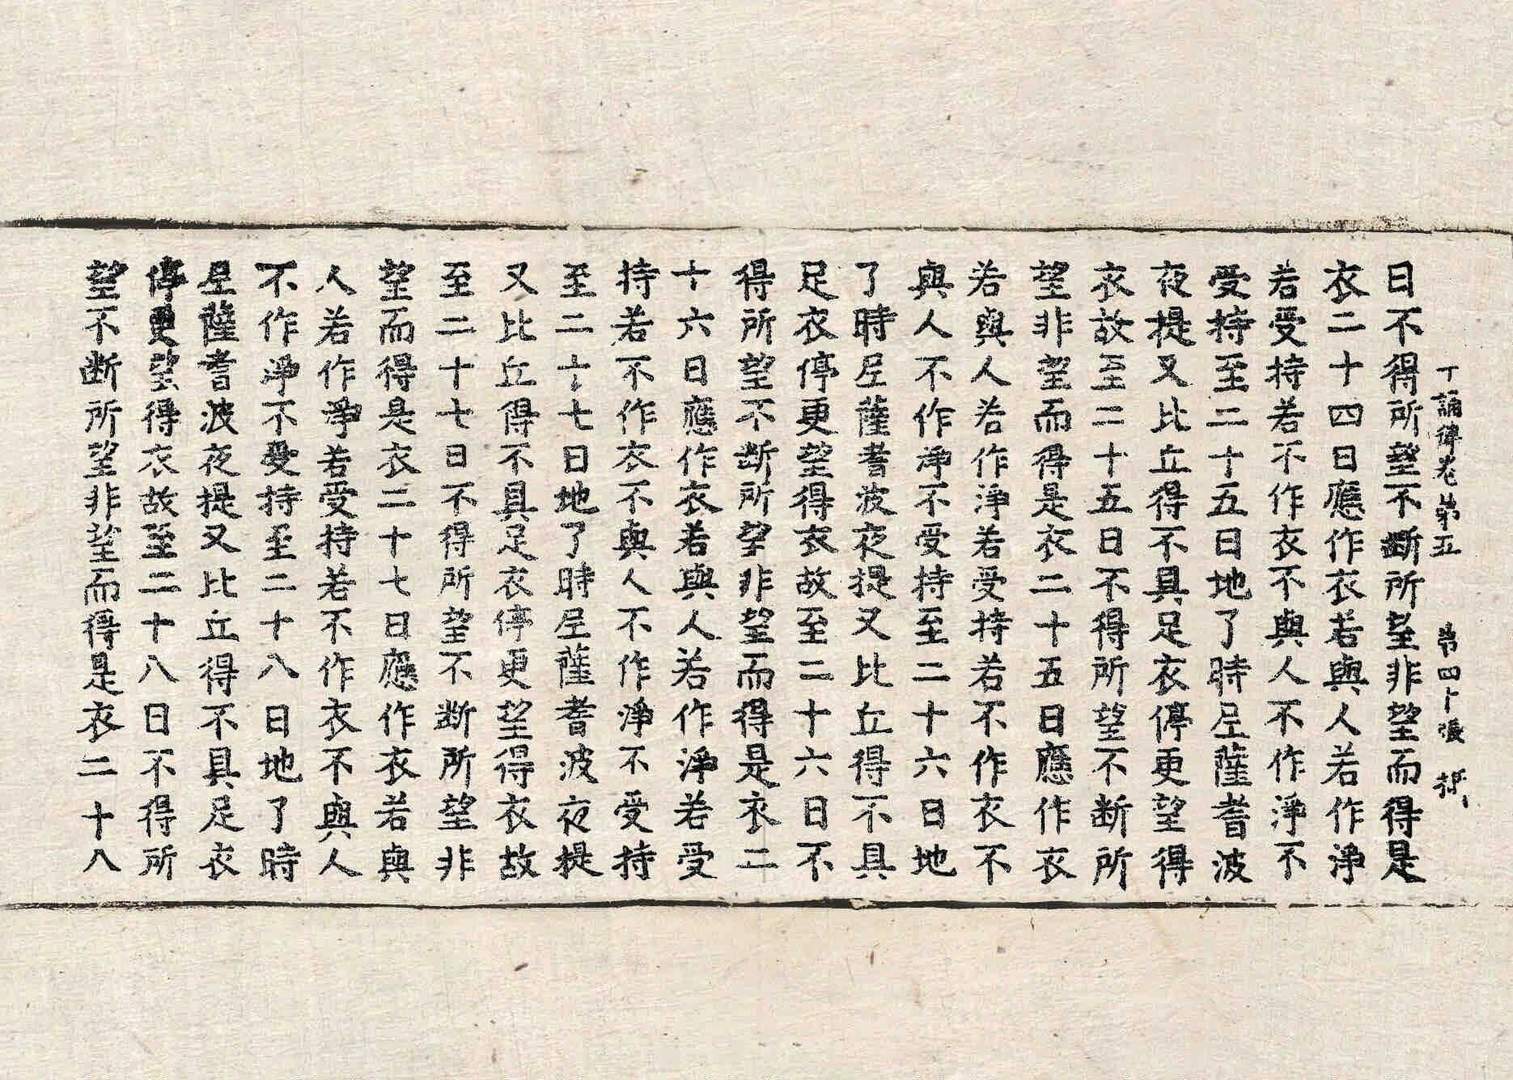 十誦律卷第五 第四十張
日不得所望不断所望非望而得是
衣二十四日應作衣若與人若作淨
若受持若不作衣不與人不作淨不
受持至二十五日地了時尼薩耆波
夜提又比丘得不具足衣停更望得
衣故至二十五日不得所望不断所
望非望而得是衣二十五日應作衣
若與人若作淨若受持若不作衣不
與人不作淨不受持至二十六日地
了時尼薩耆波夜提又比丘得不具
足衣停更望得衣故至二十六日不
得所望不断所望非望而得是衣二
十六日應作衣若與人若作淨若受
持若不作衣不與人不作淨不受持
至二十七日地了時尼薩耆波夜提
又比丘得不具足衣停更望得衣故
至二十七日不得所望不断所望非
望而得是衣二十七日應作衣若與
人若作淨若受持若不作衣不與人
不作淨不受持至二十八日地了時
尼薩耆波夜提又比丘得不具足衣
停更望得衣故至二十八日不得所
望不断所望非望而得是衣二十八